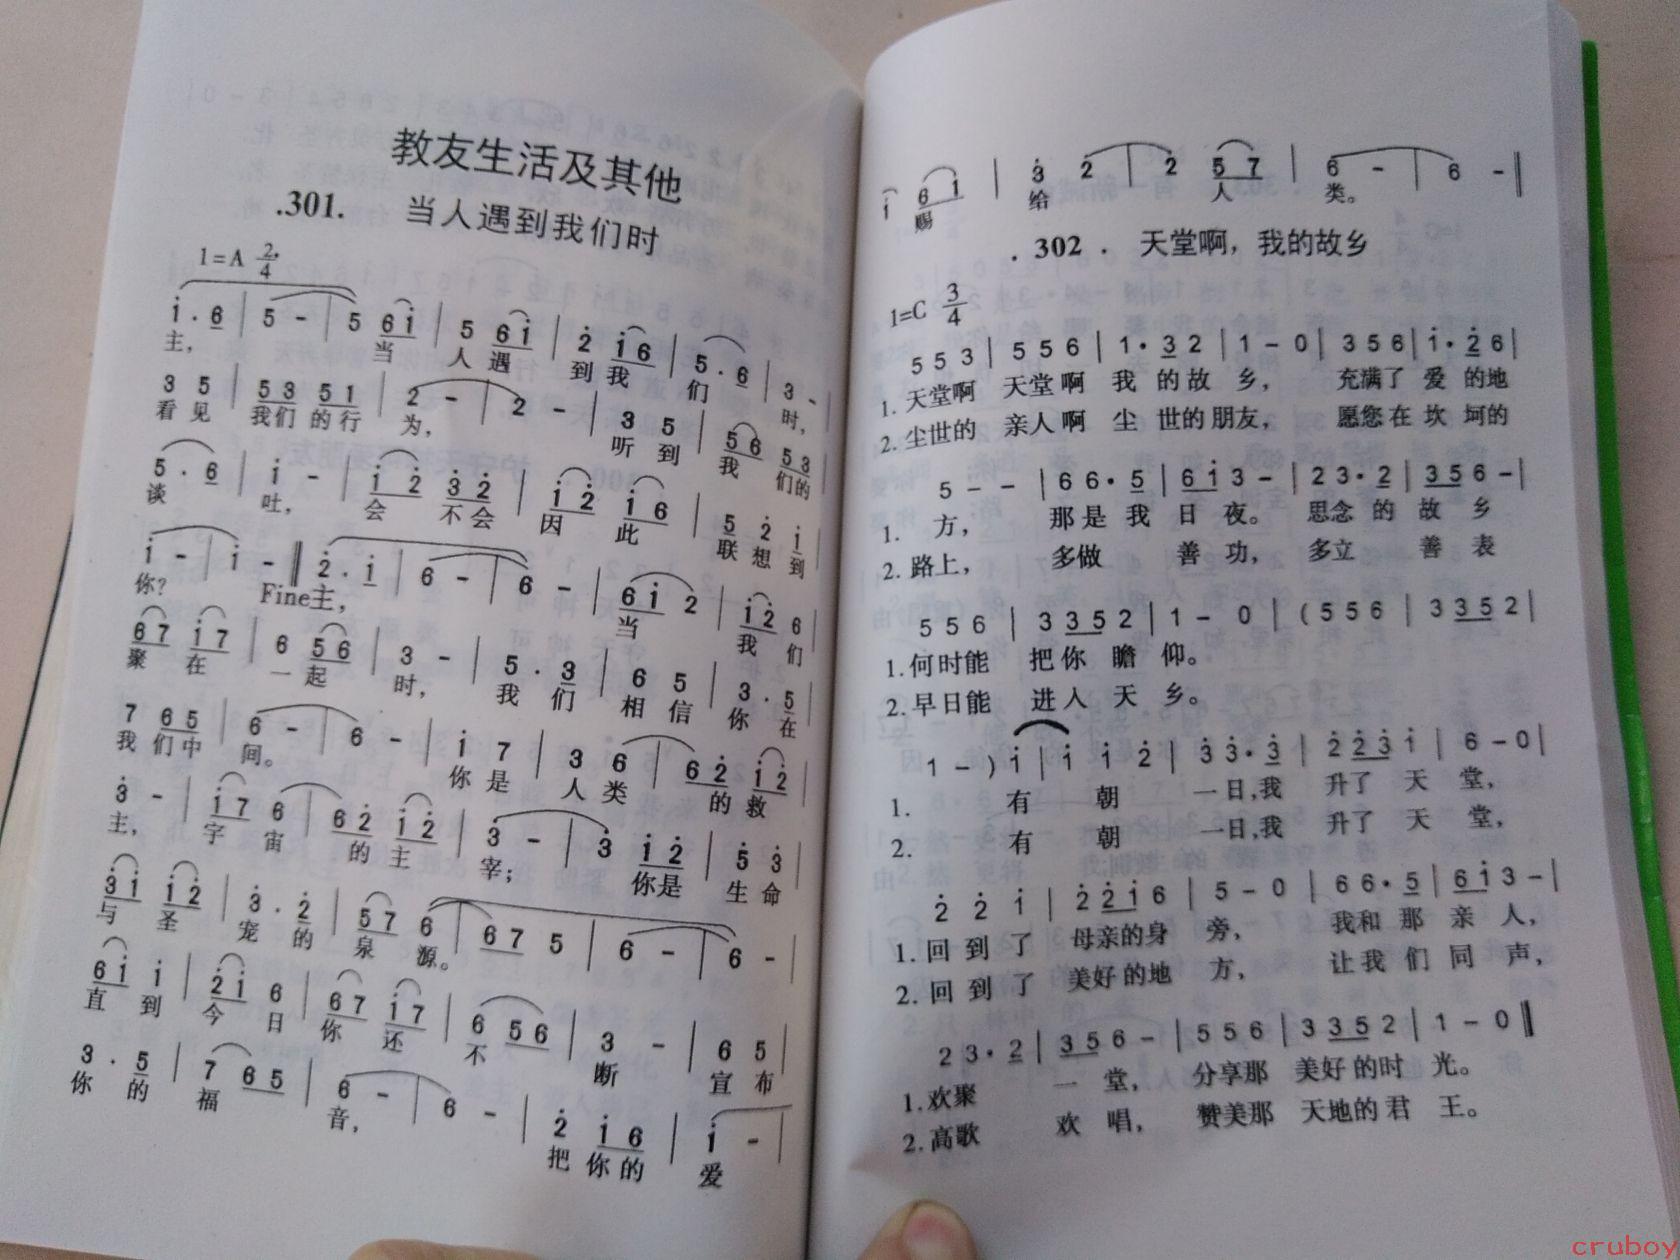 教友生活及其他
.301. 当人遇到我们时
1=A 2/4
i̇ . 6 | 5 - | 5 6 i̇ | 5 6 i̇ | 2̇ i̇ 6 | 5 . 6 | 3 -
主， 当 人 遇 到 我 们 时，
3 5 | 5 3 5 1 | 2 - | 2 - | 3 5 | 5 6 5 3 |
看 见 我们 的 行 为， 听 到 我 们的
5 . 6 | i̇ - | i̇ 2̇ 3̇ 2̇ | i̇ 2̇ i̇ 6 | 5 2̇ i̇ |
谈 吐， 会 不会 因 此 联 想 到
i̇ - | i̇ - ‖ 2̇ . i̇ | 6 - | 6 - | 6 i̇ 2 | i̇ 2̇ 6 |
你？ Fine主， 当 我 们
6 7 i̇ 7 | 6 5 6 | 3 - | 5 . 3 | 6 5 | 3 . 5 |
聚 在 一 起 时， 我 们 相 信 你 在
7 6 5 | 6 - | 6 - | i̇ 7 | 3 6 | 6 2̇ i̇ 2̇ |
我 们中 间。 你 是 人 类 的 救
3̇ - | i̇ 7 6 | 6 2̇ i̇ 2̇ | 3̇ - | 3̇ i̇ 2̇ | 5̇ 3̇ |
主， 宇 宙 的 主 宰； 你是 生 命
3̇ i̇ i̇ 2̇ | 3̇ . 2̇ | 5 7 6 | 6 7 5 | 6 - | 6 - |
与 圣 宠 的 泉 源。
6 i̇ i̇ | 2̇ i̇ 6 | 6 7 i̇ 7 | 6 5 6 | 3 - | 6 5 |
直 到 今 日 你 还 不 断 宣 布
3 . 5 | 7 6 5 | 6 - | 6 - | 2̇ i̇ 6 | i̇ - |
你 的 福 音， 把 你 的 爱
i̇ 6 i̇ | 3̇ 2̇ | 2̇ 5 7 | 6 - | 6 - ‖
赐 给 人 类。
. 302 . 天堂啊，我的故乡
1=C 3/4
5 5 3 | 5 5 6 | 1 · 3 2 | 1 - 0 | 3 5 6 | i̇ · 2̇ 6 |
1. 天堂啊 天堂 啊 我 的 故 乡， 充满了 爱 的地
2. 尘世的 亲人 啊 尘 世的 朋友， 愿您在 坎 坷的
5 - - | 6 6 · 5 | 6 i̇ 3 - | 2 3 · 2 | 3 5 6 - |
1. 方， 那 是 我 日 夜。 思念 的 故 乡
2. 路上， 多做 善 功， 多立 善 表
5 5 6 | 3 3 5 2 | 1 - 0 | ( 5 5 6 | 3 3 5 2 |
1. 何时能 把你 瞻 仰。
2. 早日能 进入 天 乡。
1 - ) i̇ | i̇ i̇ 2̇ | 3̇ 3̇ · 3̇ | 2̇ 2̇ 3̇ i̇ | 6 - 0 |
1. 有 朝 一日，我 升了 天 堂，
2. 有 朝 一日，我 升了 天 堂，
2̇ 2̇ i̇ | 2̇ 2̇ i̇ 6 | 5 - 0 | 6 6 · 5 | 6 i̇ 3 - |
1. 回 到 了 母亲的身 旁， 我和 那 亲 人，
2. 回 到 了 美好的地 方， 让我 们 同 声，
2 3 · 2 | 3 5 6 - | 5 5 6 | 3 3 5 2 | 1 - 0 ‖
1. 欢聚 一 堂， 分享那 美好 的时 光。
2. 高歌 欢 唱， 赞美那 天地的 君 王。
cruboy